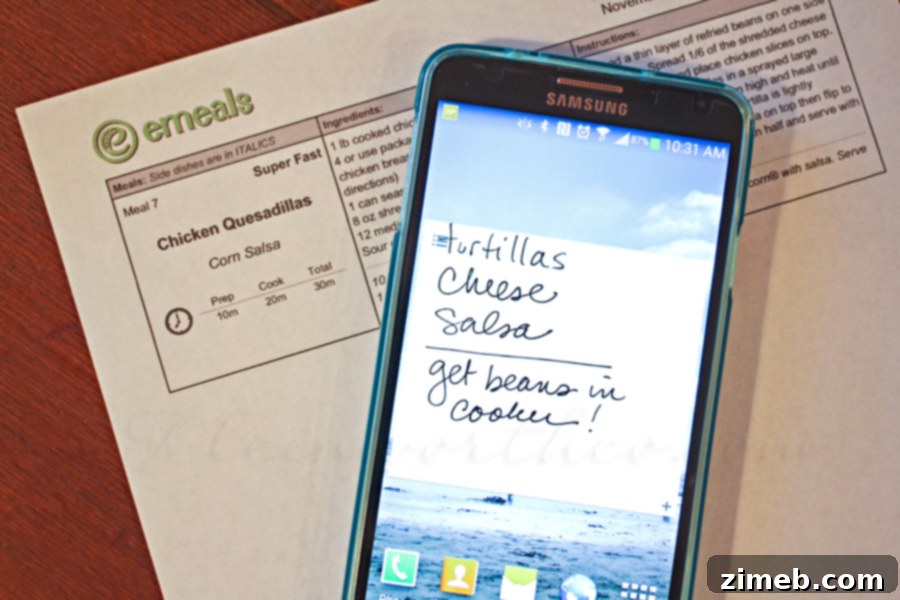 November
emeals
Meals: Side dishes are in ITALICS
Super Fast
Meal 7
Chicken Quesadillas
Corn Salsa
Prep Cook Total
10m 20m 30m
Ingredients:
1 lb cooked
4 or use
chicken
directions)
1 can
8 oz
12
Sour
10
1
Instructions:
a thin layer of refried beans on one side
Spread 1/6 of the shredded cheese
and place chicken slices on top.
in a sprayed large
high and heat until
is lightly
on top then flip to
half and serve with
with salsa. Serve
SAMSUNG
87% 10:31 AM
tortillas
Cheese
Salsa
get beans in
cooker!
zimeb.com